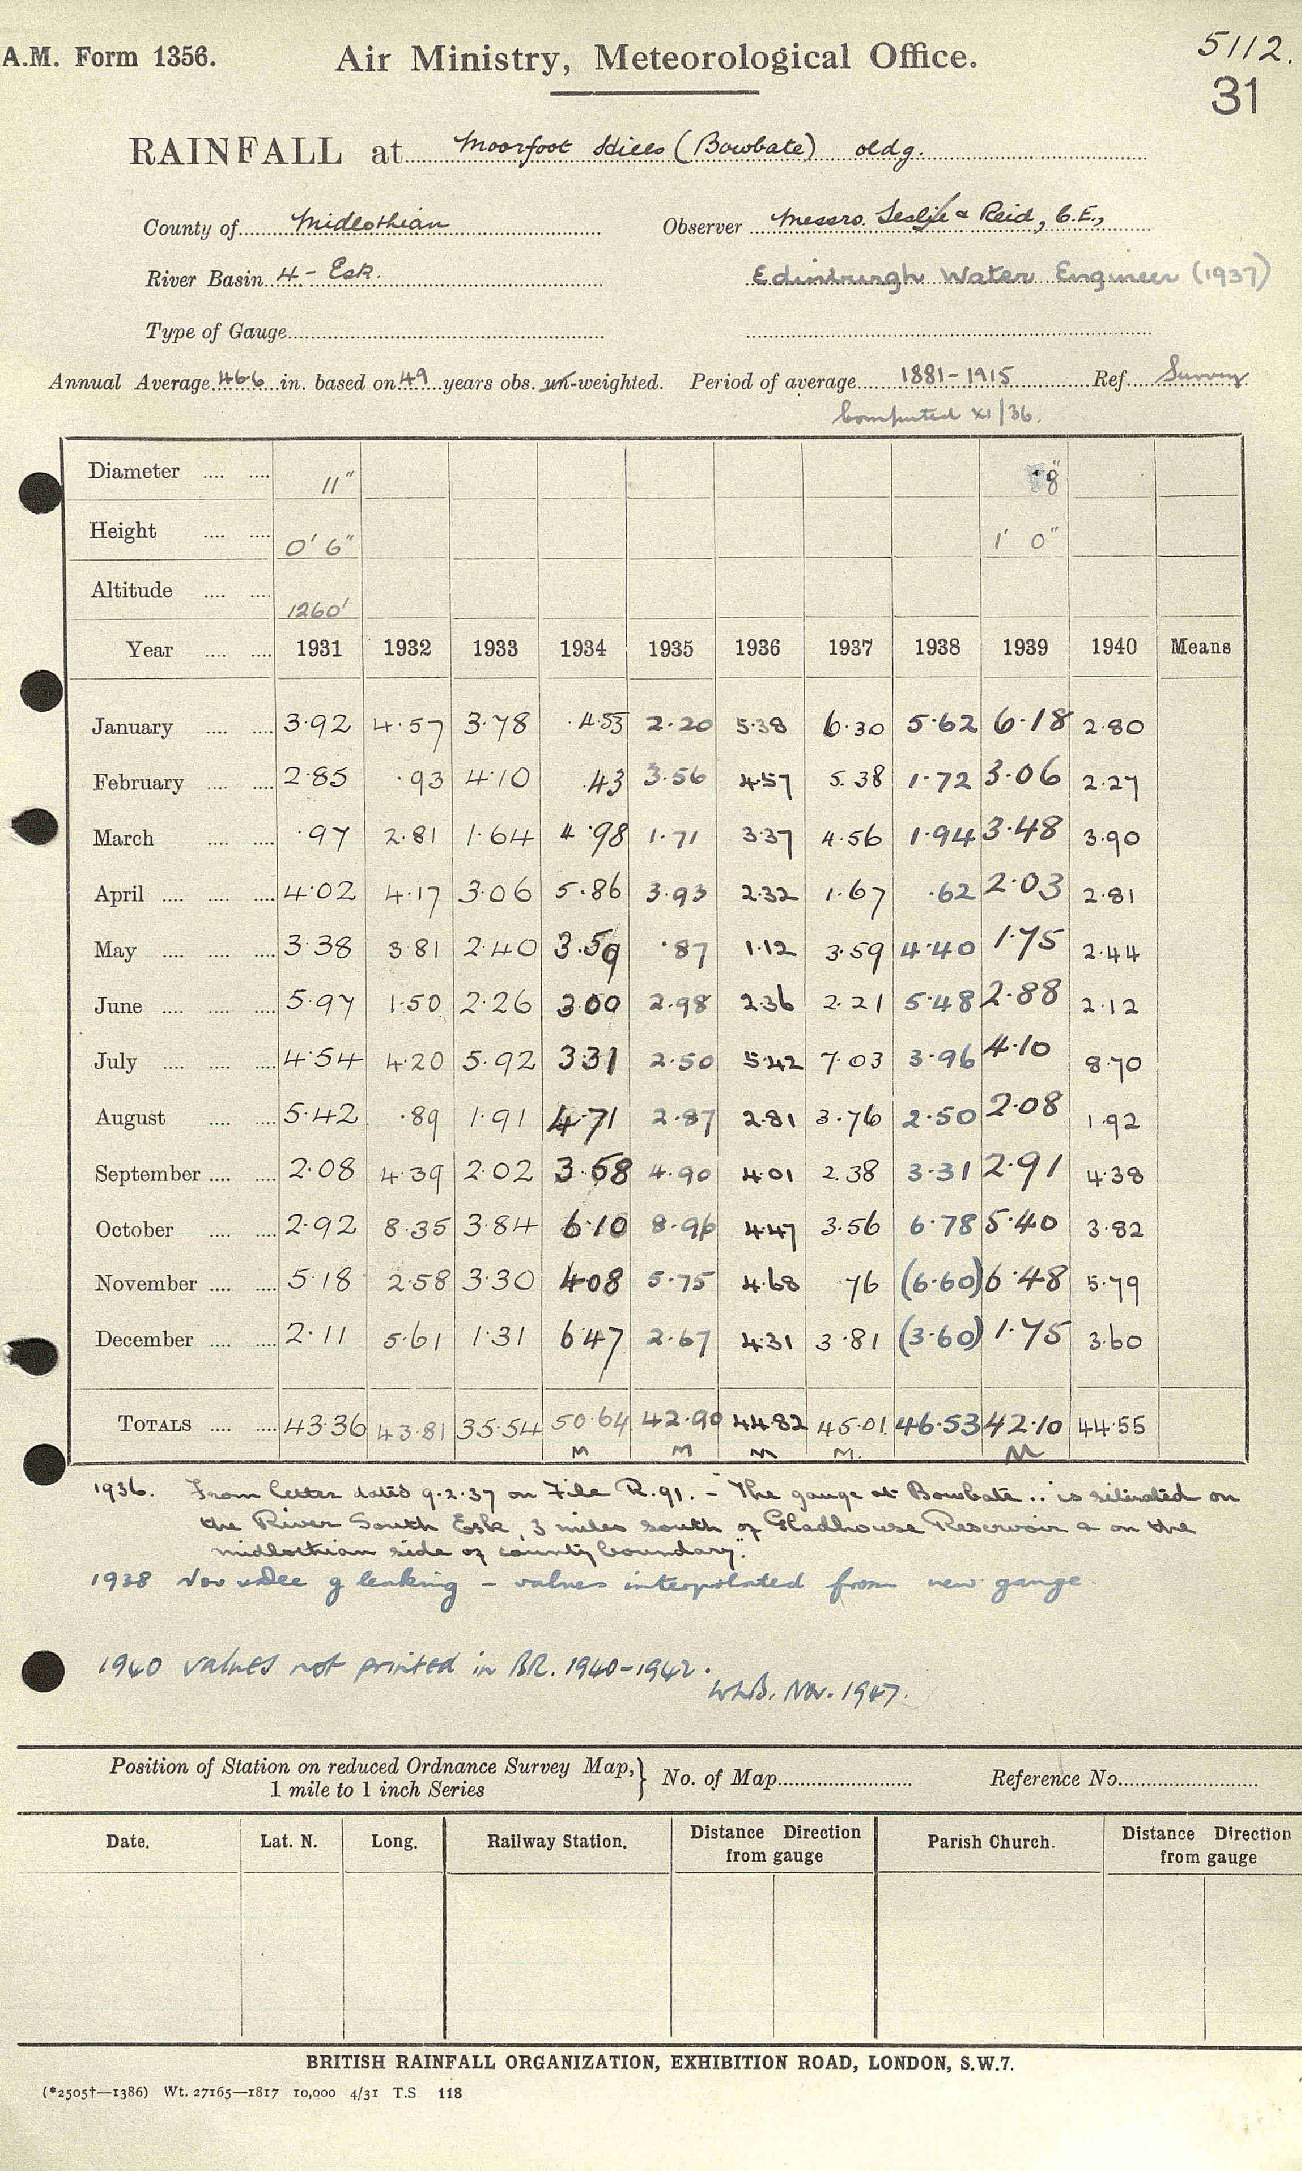 A.M. Form 1356. Air Ministry, Meteorological Office. 5112.
31
RAINFALL at Moorfoot Hills (Bowbate) oldg.
County of Midlothian Observer Messrs. Leslie & Reid, C.E.,
River Basin 4 - Esk. Edinburgh Water Engineer (1937)
Type of Gauge
Annual Average 46.6 in. based on 49 years obs. un-weighted. Period of average 1881-1915 Ref. Survey
Computed XI/36.
Diameter 11" 8"
Height 0' 6" 1' 0"
Altitude 1260'
Year 1931 1932 1933 1934 1935 1936 1937 1938 1939 1940 Means
January 3.92 4.57 3.78 4.53 2.20 5.38 6.30 5.62 6.18 2.80
February 2.85 .93 4.10 .43 3.56 4.57 5.38 1.72 3.06 2.27
March .97 2.81 1.64 4.98 1.71 3.37 4.56 1.94 3.48 3.90
April 4.02 4.17 3.06 5.86 3.93 2.32 1.67 .62 2.03 2.81
May 3.38 3.81 2.40 3.59 .87 1.12 3.59 4.40 1.75 2.44
June 5.97 1.50 2.26 3.00 2.98 2.36 2.21 5.48 2.88 2.12
July 4.54 4.20 5.92 3.31 2.50 5.42 7.03 3.96 4.10 8.70
August 5.42 .89 1.91 4.71 2.87 2.81 3.76 2.50 2.08 1.92
September 2.08 4.39 2.02 3.58 4.90 4.01 2.38 3.31 2.91 4.38
October 2.92 8.35 3.84 6.10 8.96 4.47 3.56 6.78 5.40 3.82
November 5.18 2.58 3.30 4.08 5.75 4.68 .76 (6.60) 6.48 5.79
December 2.11 5.61 1.31 6.47 2.67 4.31 3.81 (3.60) 1.75 3.60
TOTALS 43.36 43.81 35.54 50.64 42.90 44.82 45.01 46.53 42.10 44.55
M M M M. M
1936. From letter dated 9.2.37 on File R.91. - "The gauge at Bowbate .. is situated on
the River South Esk, 3 miles south of Gladhouse Reservoir & on the
midlothian side of county boundary."
1938 Nov & Dec g leaking - values interpolated from new gauge
1940 values not printed in BR. 1940-1942.
W.L.B. Nov. 1947.
Position of Station on reduced Ordnance Survey Map, } No. of Map Reference No.
1 mile to 1 inch Series
Date. Lat. N. Long. Railway Station. Distance Direction from gauge Parish Church. Distance Direction from gauge
BRITISH RAINFALL ORGANIZATION, EXHIBITION ROAD, LONDON, S.W.7.
(*2505†—1386) Wt. 27165—1817 10,000 4/31 T.S 118